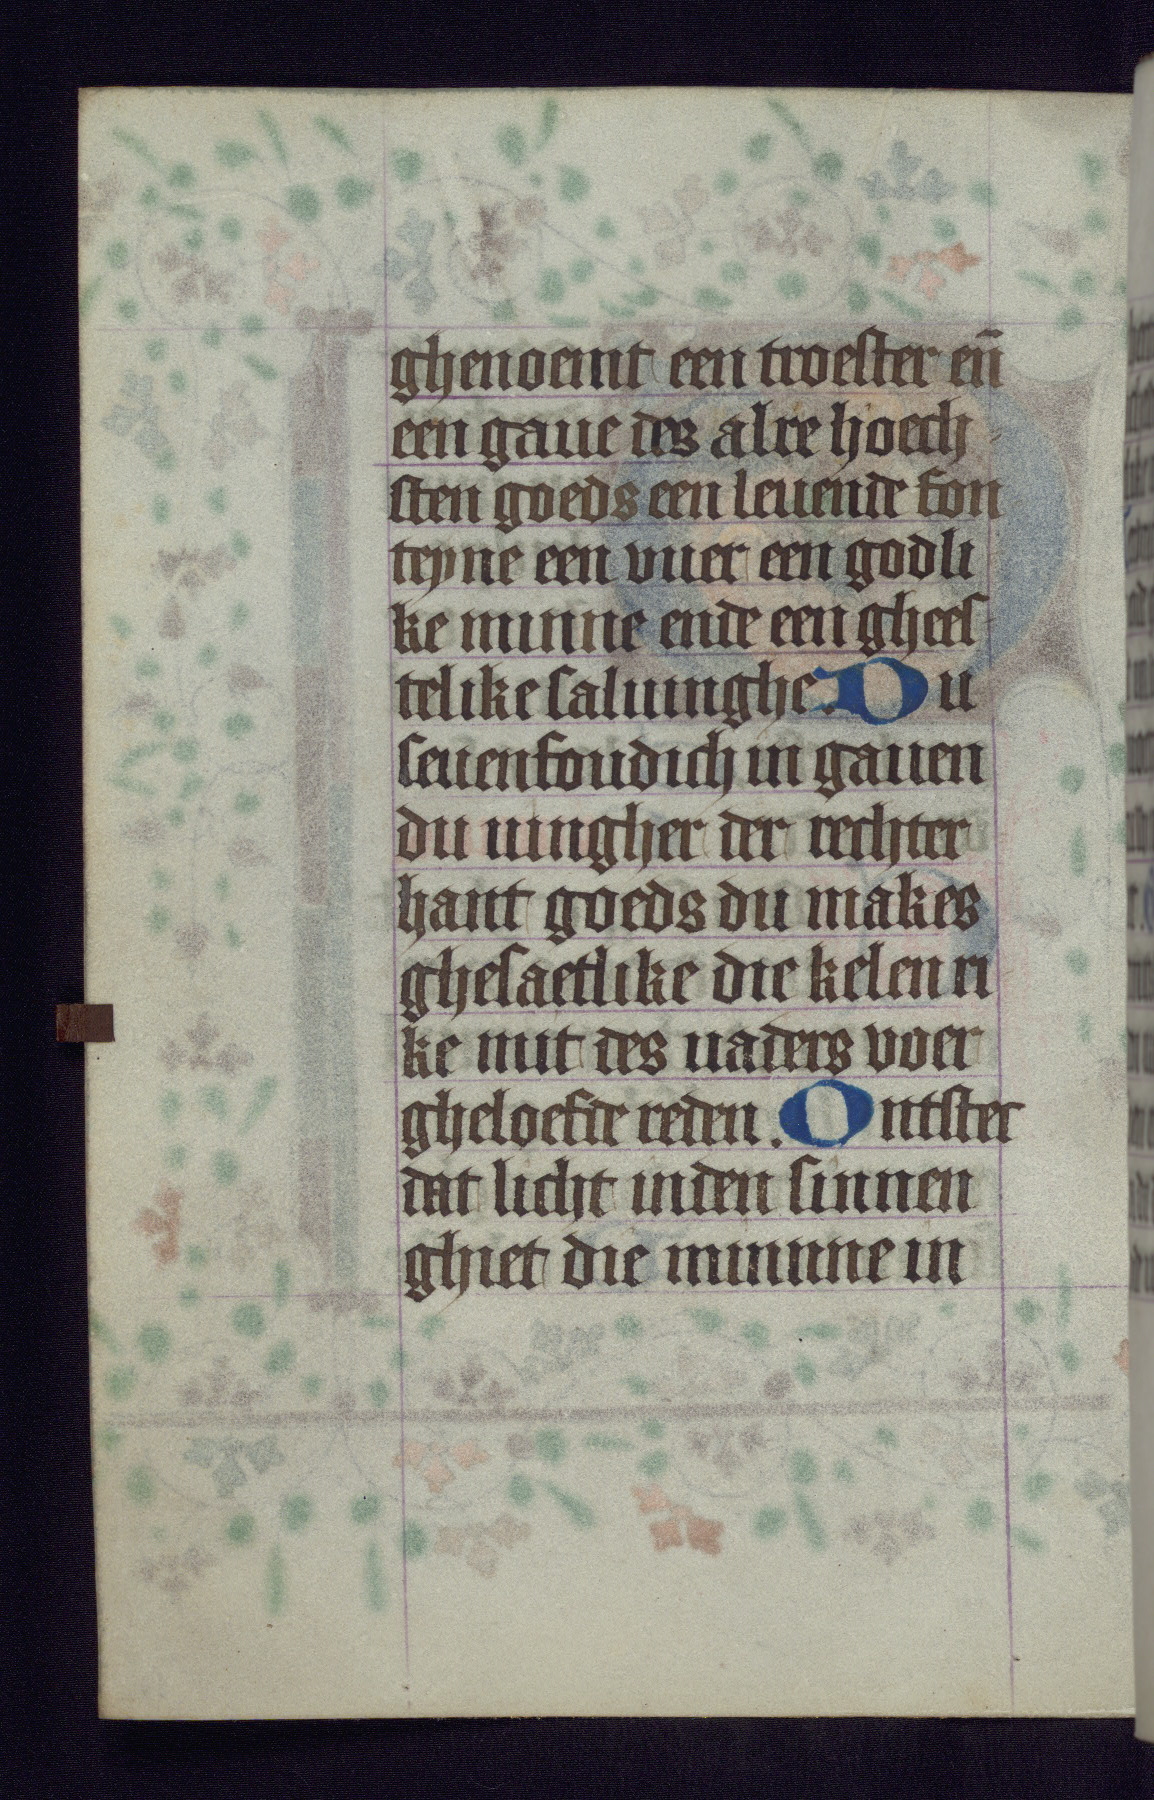 ghenoemt een troester eñ
een gaue des alre hoech
sten goeds een leuende fon
teyne een vuer een godli
ke minne ende een ghees
telike saluinghe. Du
seuenfoudich in gauen
du uingher der rechter
hant goeds du makes
ghesaetlike die kelen ri
ke mit des uaders voer
gheloefde reden. Ontstec
dat licht inden sinnen
ghiet die minnne in